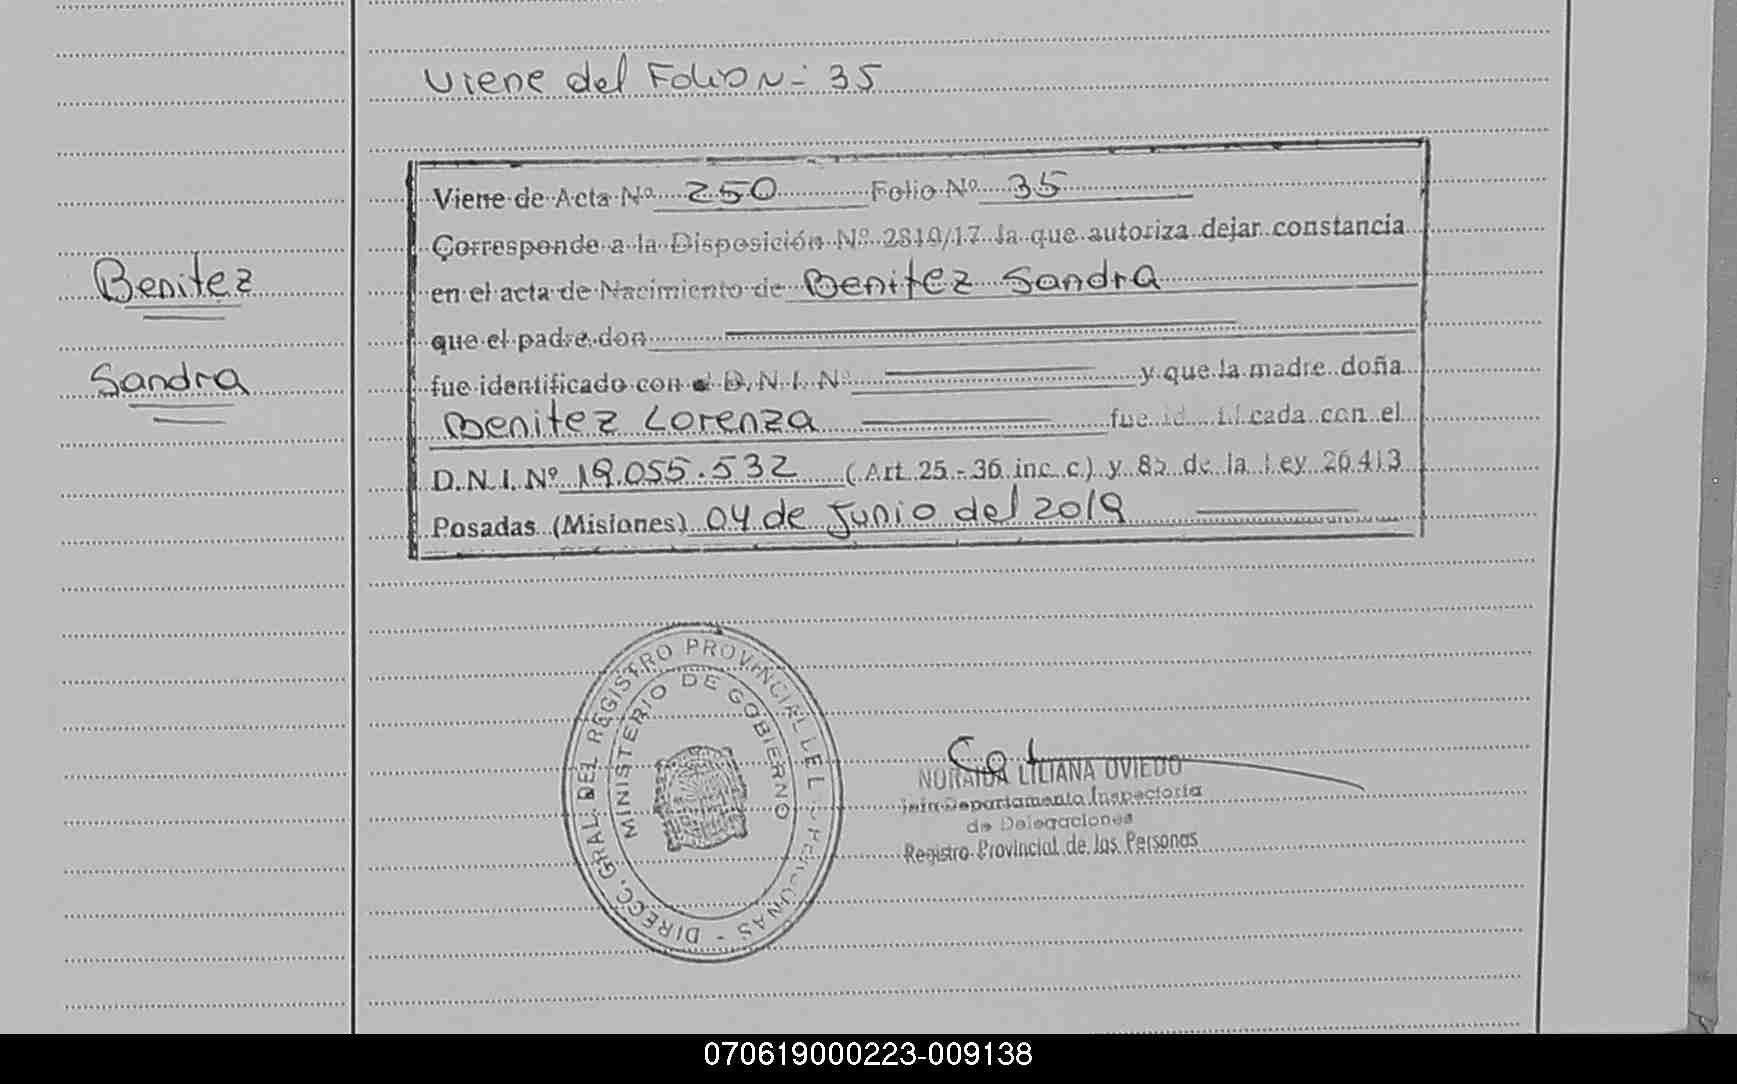 Viene del Folio N- 35
Viene de Acta Nº 250 Folio Nº 35
Corresponde a la Disposición Nº 2810/17 la que autoriza dejar constancia
Benitez
en el acta de Nacimiento de Benitez Sandra
que el padre don
Sandra
fue identificado con el D.N.I. Nº y que la madre doña
Benitez Lorenza fue cada con el
D.N.I. Nº 19.055.532 (Art. 25 - 36 inc c.) y 85 de la Ley 26.413
Posadas (Misiones) 04 de Junio del 2019
DIRECC. GRAL. DEL REGISTRO PROVINCIAL DE PERSONAS -
MINISTERIO DE GOBIERNO
NORAIDA LILIANA OVIEDO
Departamento Inspectoria
de Delegaciones
Registro Provincial de las Personas
070619000223-009138